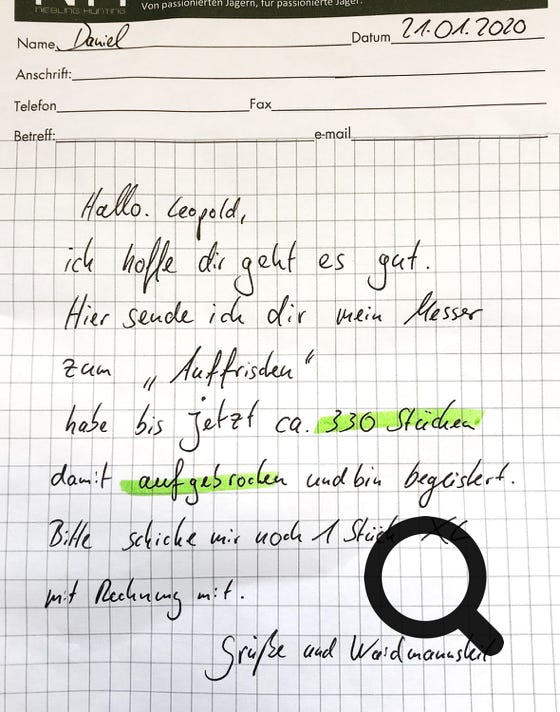 NIEBLING HUNTING
Von passionierten Jägern, für passionierte Jäger.
Name Daniel Datum 21.01.2020
Anschrift:
Telefon Fax
Betreff: e-mail
Hallo. Leopold,
ich hoffe dir geht es gut.
Hier sende ich dir mein Messer
zum „Auffrischen"
habe bis jetzt ca. 330 Stücken
damit aufgebrochen und bin begeistert.
Bitte schicke mir noch 1 Stück
mit Rechnung mit.
Grüße und Waidmannsheil